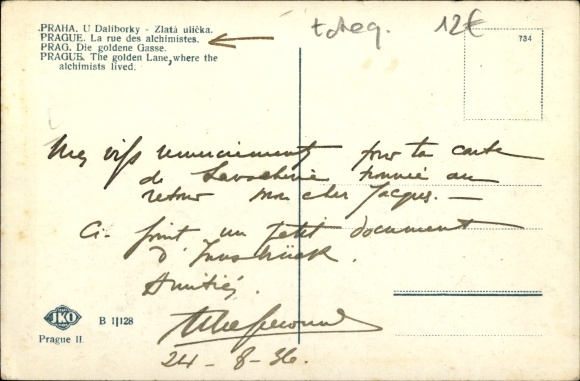 PRAHA. U Daliborky - Zlatá ulička.
PRAGUE. La rue des alchimistes.
PRAG. Die goldene Gasse.
PRAGUE. The golden Lane, where the
alchimists lived.
tcheq. 12€
734
Mes vifs remerciements pour ta carte
de trouvée au
retour mon cher Jacques. —
Ci-joint un petit document
d'Innsbrück.
Amitiés.
24-8-36.
JKO
Prague II.
B 1|128